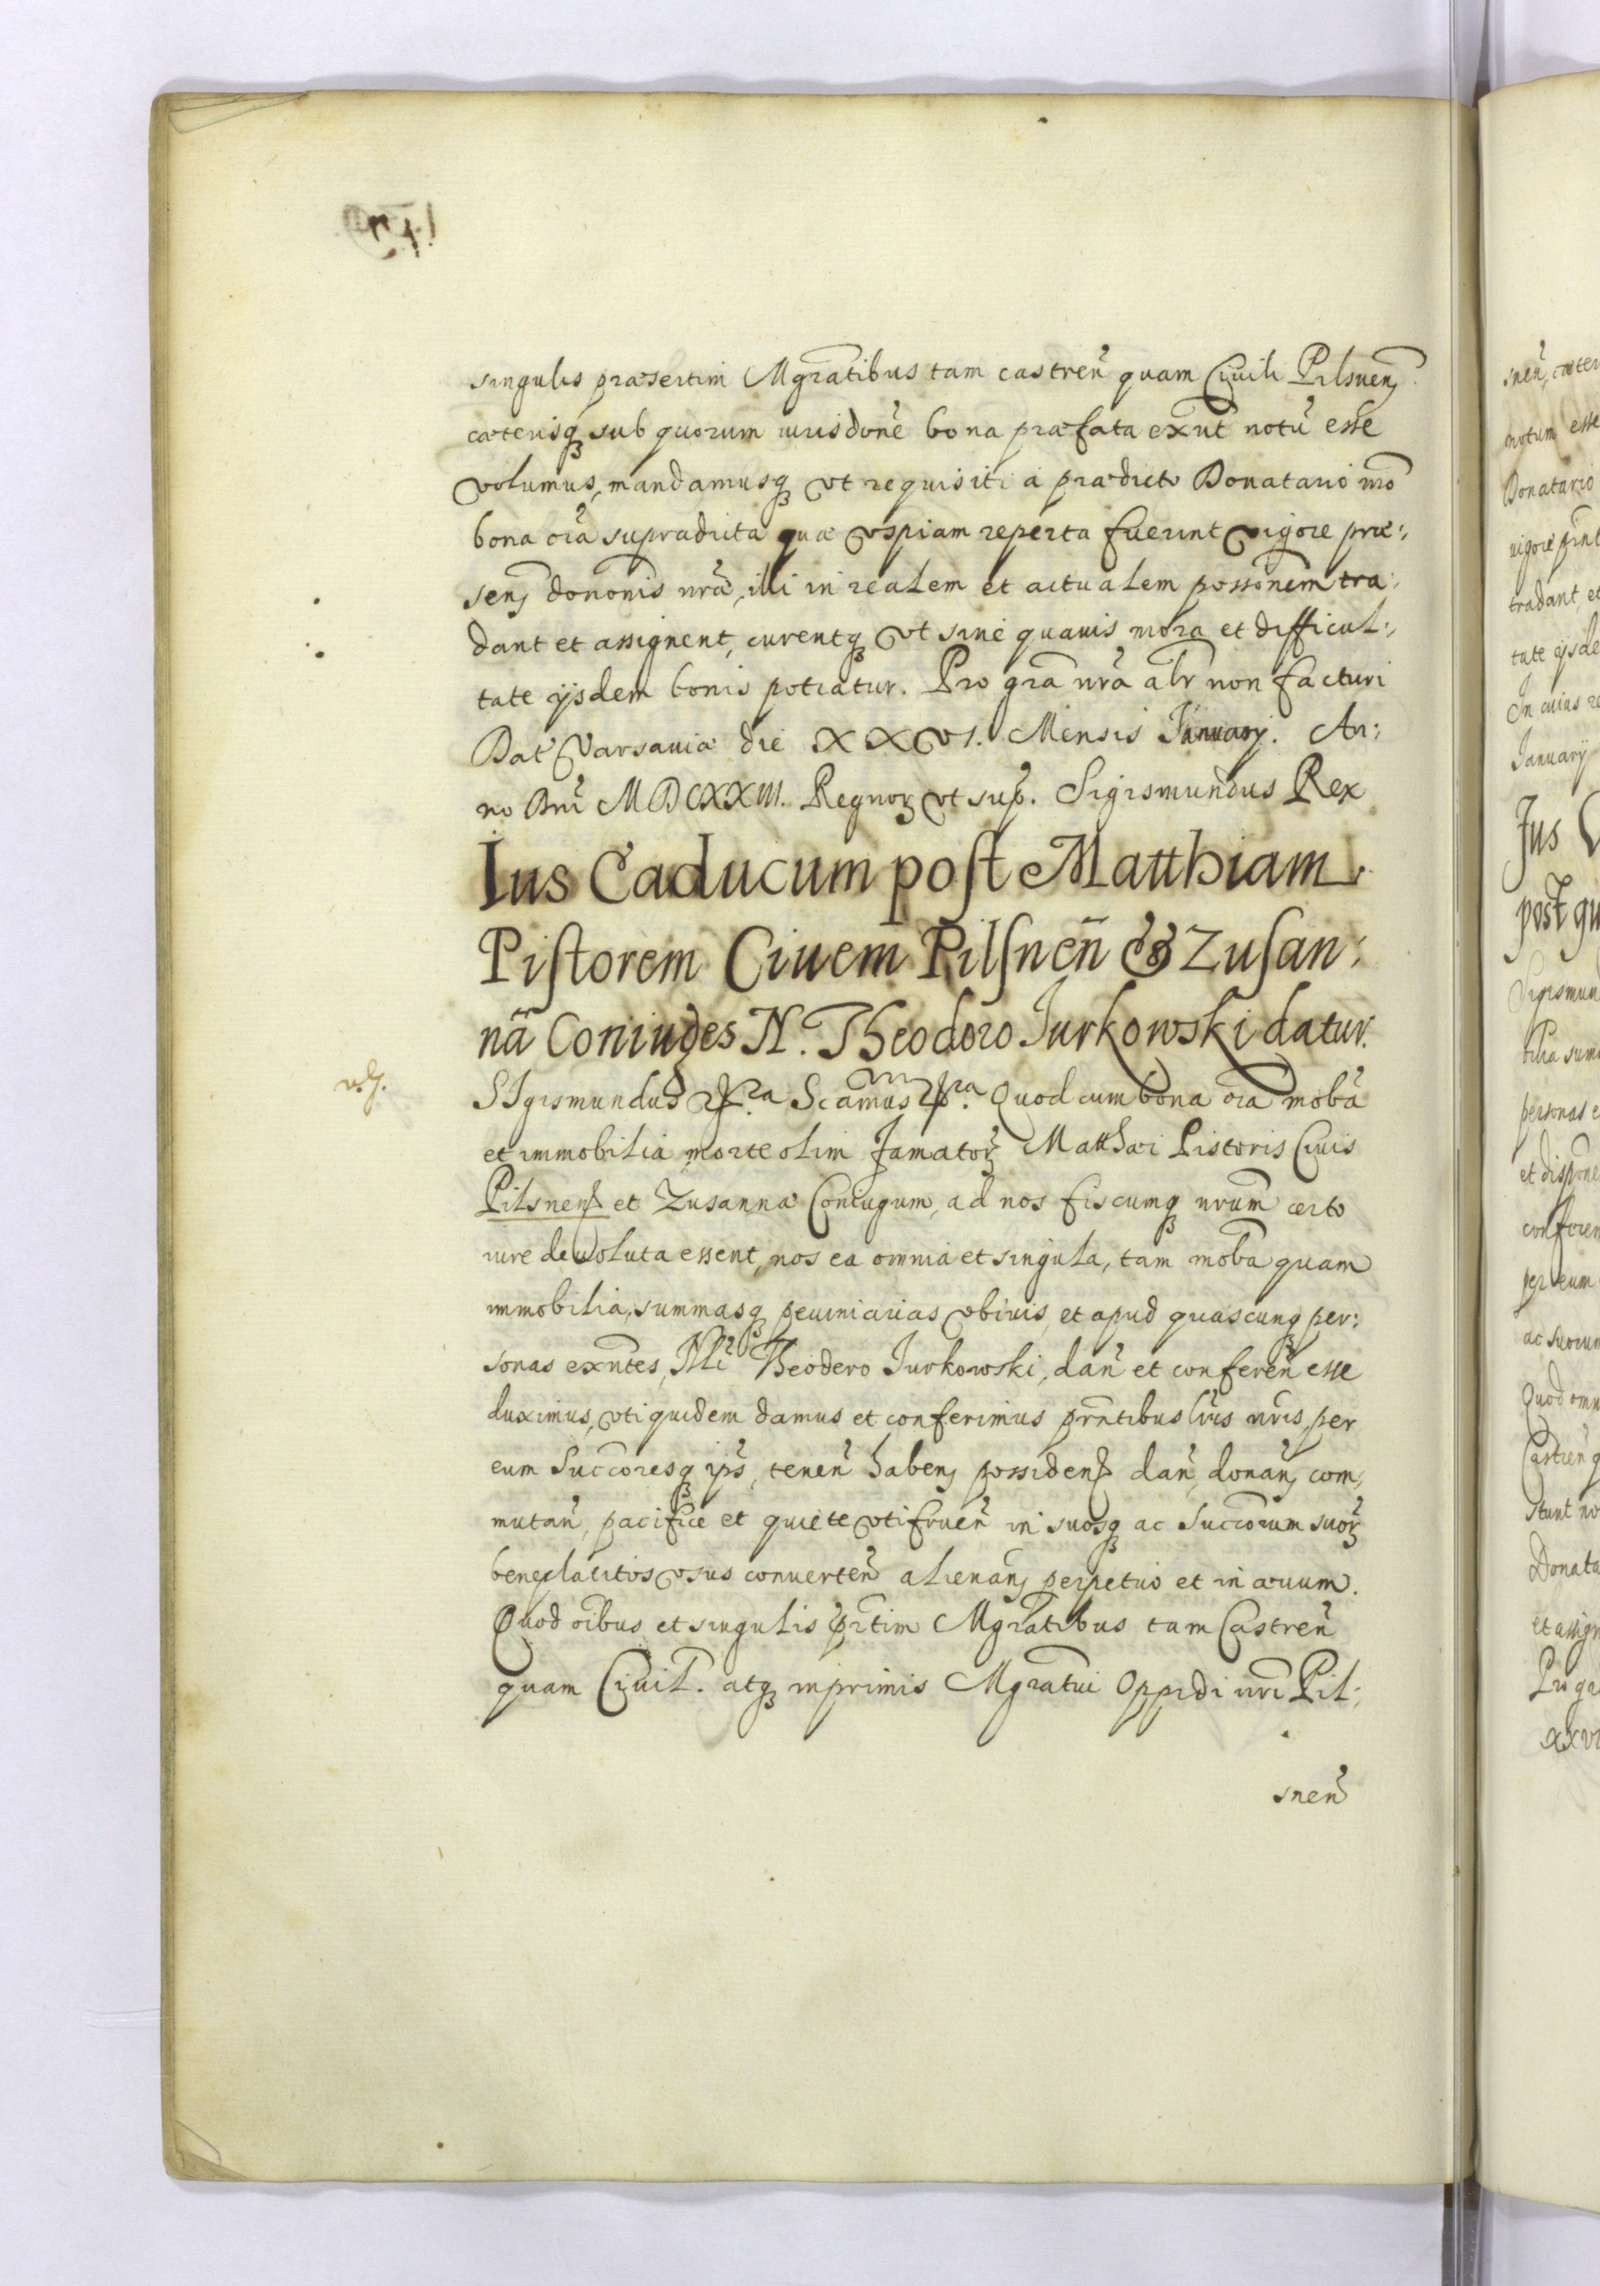 singulis præsertim Mgr̃atibus tam castreñ quam Civili Pilsnen̄
cæterisq̃ sub quorum iurisdone͂ bona præfata exñt notũ esse
volumus, mandamusq̃ vt requisiti a prædicto Donatario nr̃o
bona oĩa supradicta quæ vspiam reperta fuerint vigore præ:
sens̃ dononis nr̃æ, illi in realem et actualem possonem tra:
dant et assignent, curentq̃ vt sine quavis mora et difficul:
tate ijsdem bonis potiatur. Pro gr̃a nr̃a alr̃ non facturi
Dat Varsaviæ die XXVI. Mensis January. An:
no Dni͂ MDCXXIII. Regnoꝝ vt sup̃. Sigismundus Rex
Ius Caducum post Matthiam
Pistorem Ciuem Pilsnen͂ & Zusan:
nã Coniuges N. Theodoro Jurkowski datur.
SIgismundus &.ra Scamus &.ra Quod cum bona oĩa mobã
et immobilia morte olim famatoꝝ Matthæi Pistoris Civis
Pilsnens̃ et Zusannæ Coniugum, ad nos fiscumq̃ nr̃um certo
iure devoluta essent, nos ea omnia et singula, tam moba͂ quam
immobilia, summasq̃ pecuniarias vbivis, et apud quascunq̃ per:
sonas exñtes, Nli͂ Theodero Iurkowski, dan͂ et conferen͂ esse
duximus, vti quidem damus et conferimus pr̃ntibus lr̃is nr̃is, per
eum Succoresq̃ ips͂, tenen͂ habens̃ possidens̃ dan͂, donans̃ com:
mutan͂, pacifice et quiete vtifruen͂ in suosq̃ ac Succorum suoꝝ
beneplacitos vsus converten͂ alienans̃ perpetuo et in ævum.
Quod oĩbus et singulis pr̃tim Mgr̃atibus tam Castren͂
quam Civil. atq̃ inprimis Mgr̃atui Oppidi nr̃i Pil:
snen͂